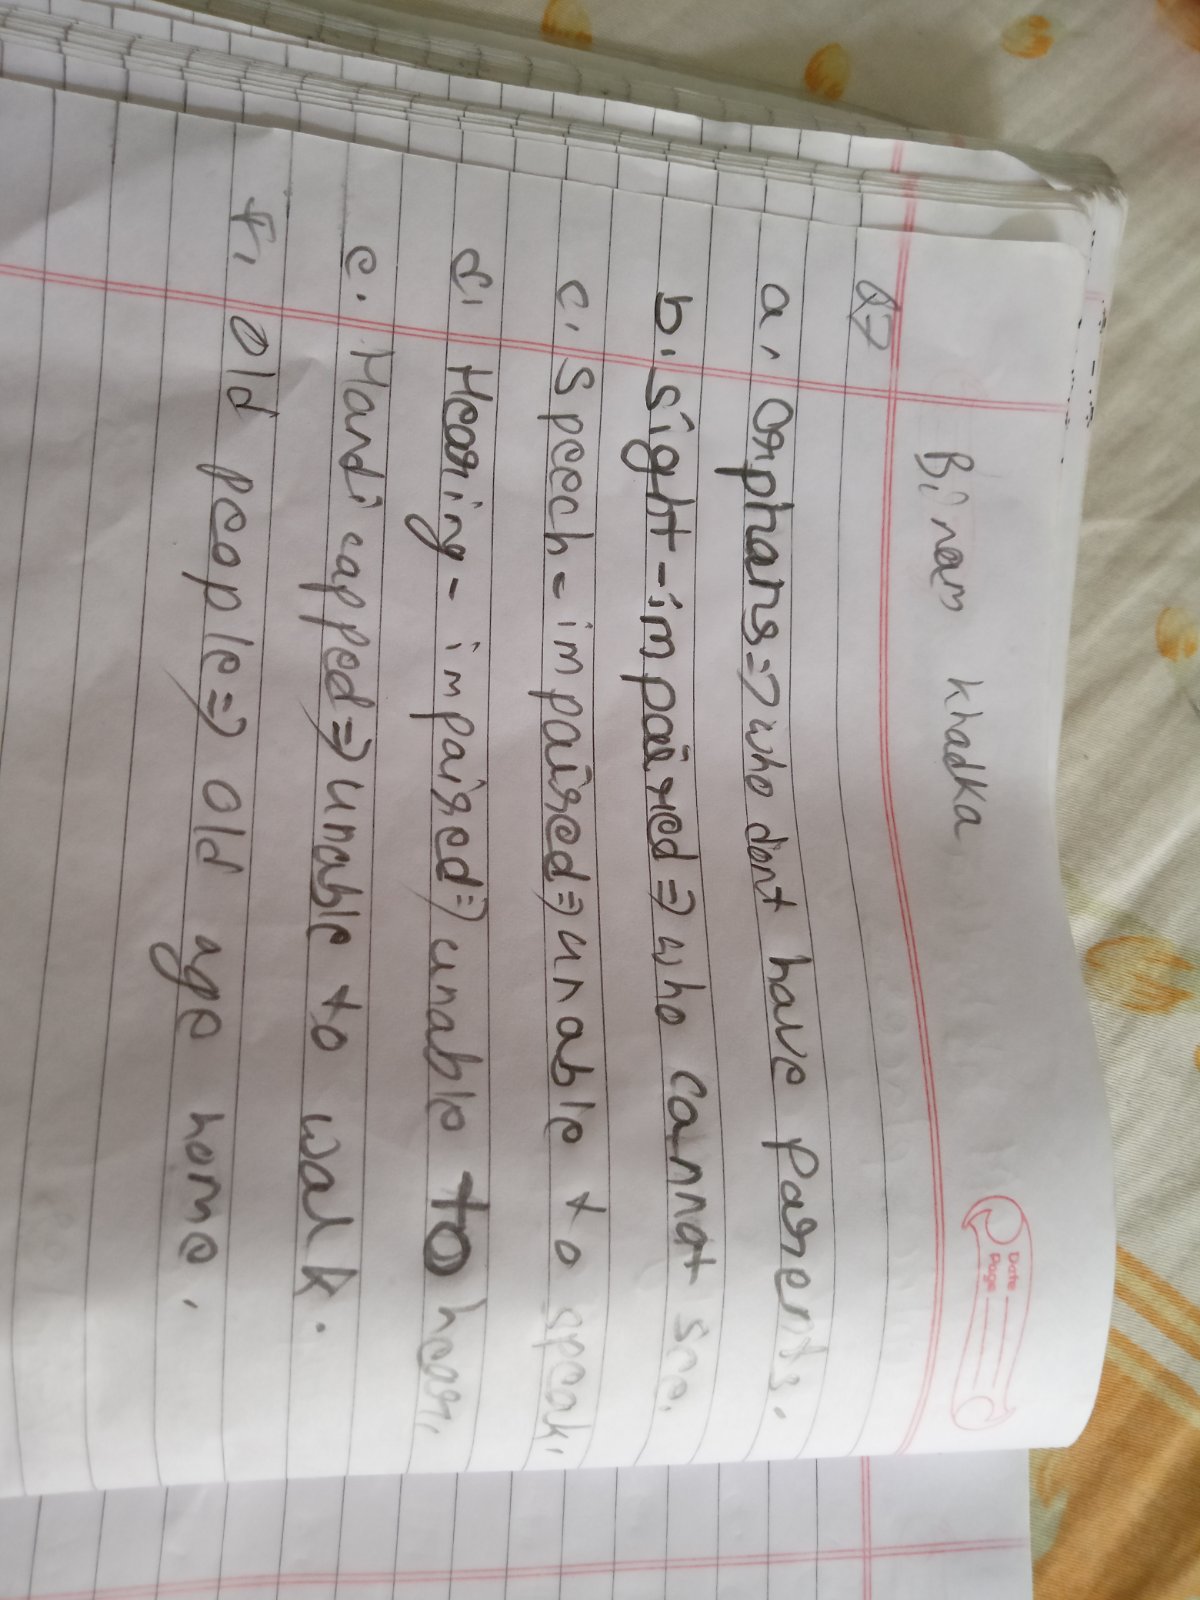 Binam khadka
Date
Page
Q7
a. orphans=> who dont have parents.
b. sight-impaired => who cannot see.
c. Speech-impaired=> unable to speak.
d. Hearing-impaired=> unable to hear.
e. Handicapped=> unable to walk.
f. Old people=> old age home.